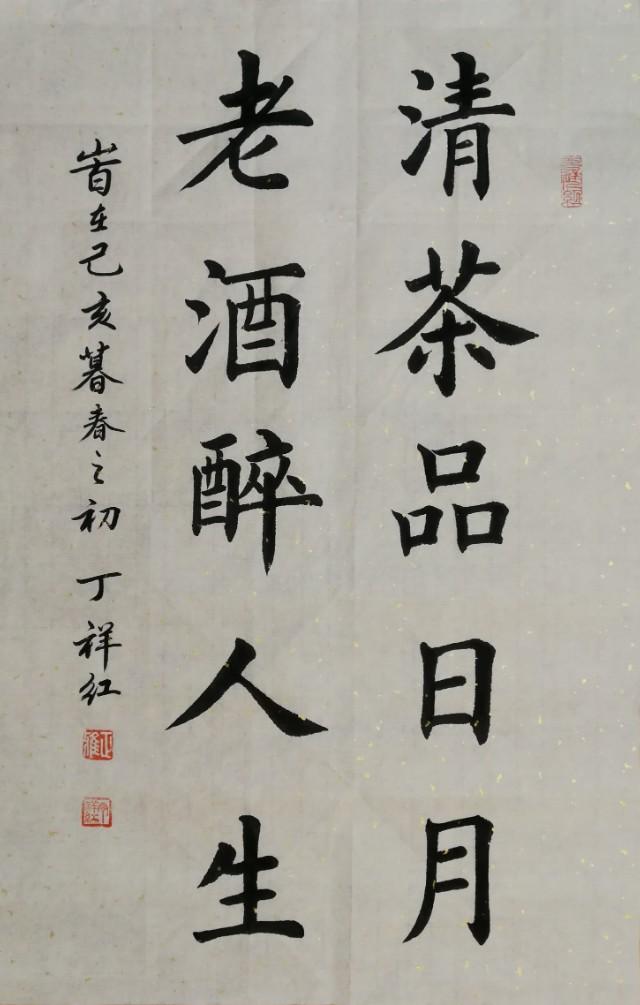 清茶品日月
老酒醉人生
旹在己亥暮春之初 丁祥红